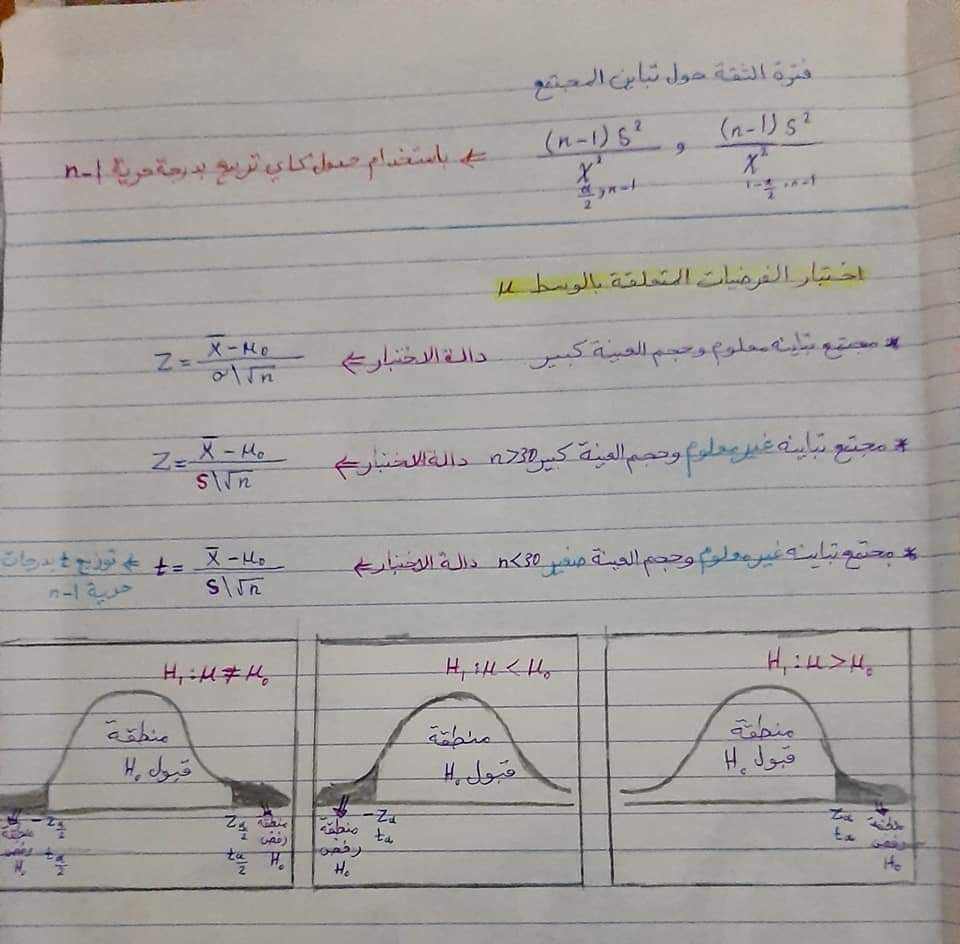 فترة الثقة حول تباين المجتمع
(n-1)S² / X² α/2, n-1 , (n-1)S² / X² 1-α/2, n-1 ⇐ باستخدام جدول كاي تربيع بدرجة حرية n-1
اختبار الفرضيات المتعلقة بالوسط μ
* مجتمع تباينه معلوم وحجم العينة كبير دالة الاختبار ⇐ Z = X̄-μ₀ / σ\√n
* مجتمع تباينه غير معلوم وحجم العينة كبير n>30 دالة الاختبار ⇐ Z = X̄-μ₀ / S\√n
* مجتمع تباينه غير معلوم وحجم العينة صغير n<30 دالة الاختبار ⇐ t = X̄-μ₀ / S\√n ⇐ توزيع t بدرجات
حرية n-1
H₁:μ>μ₀
منطقة
قبول H₀
Zα
tα
منطقة
رفض
H₀
H₁:μ<μ₀
منطقة
قبول H₀
-Zα
tα
منطقة
رفض
H₀
H₁:μ≠μ₀
منطقة
قبول H₀
Zα/2
tα/2
منطقة
رفض
H₀
-Zα/2
-tα/2
منطقة
رفض
H₀